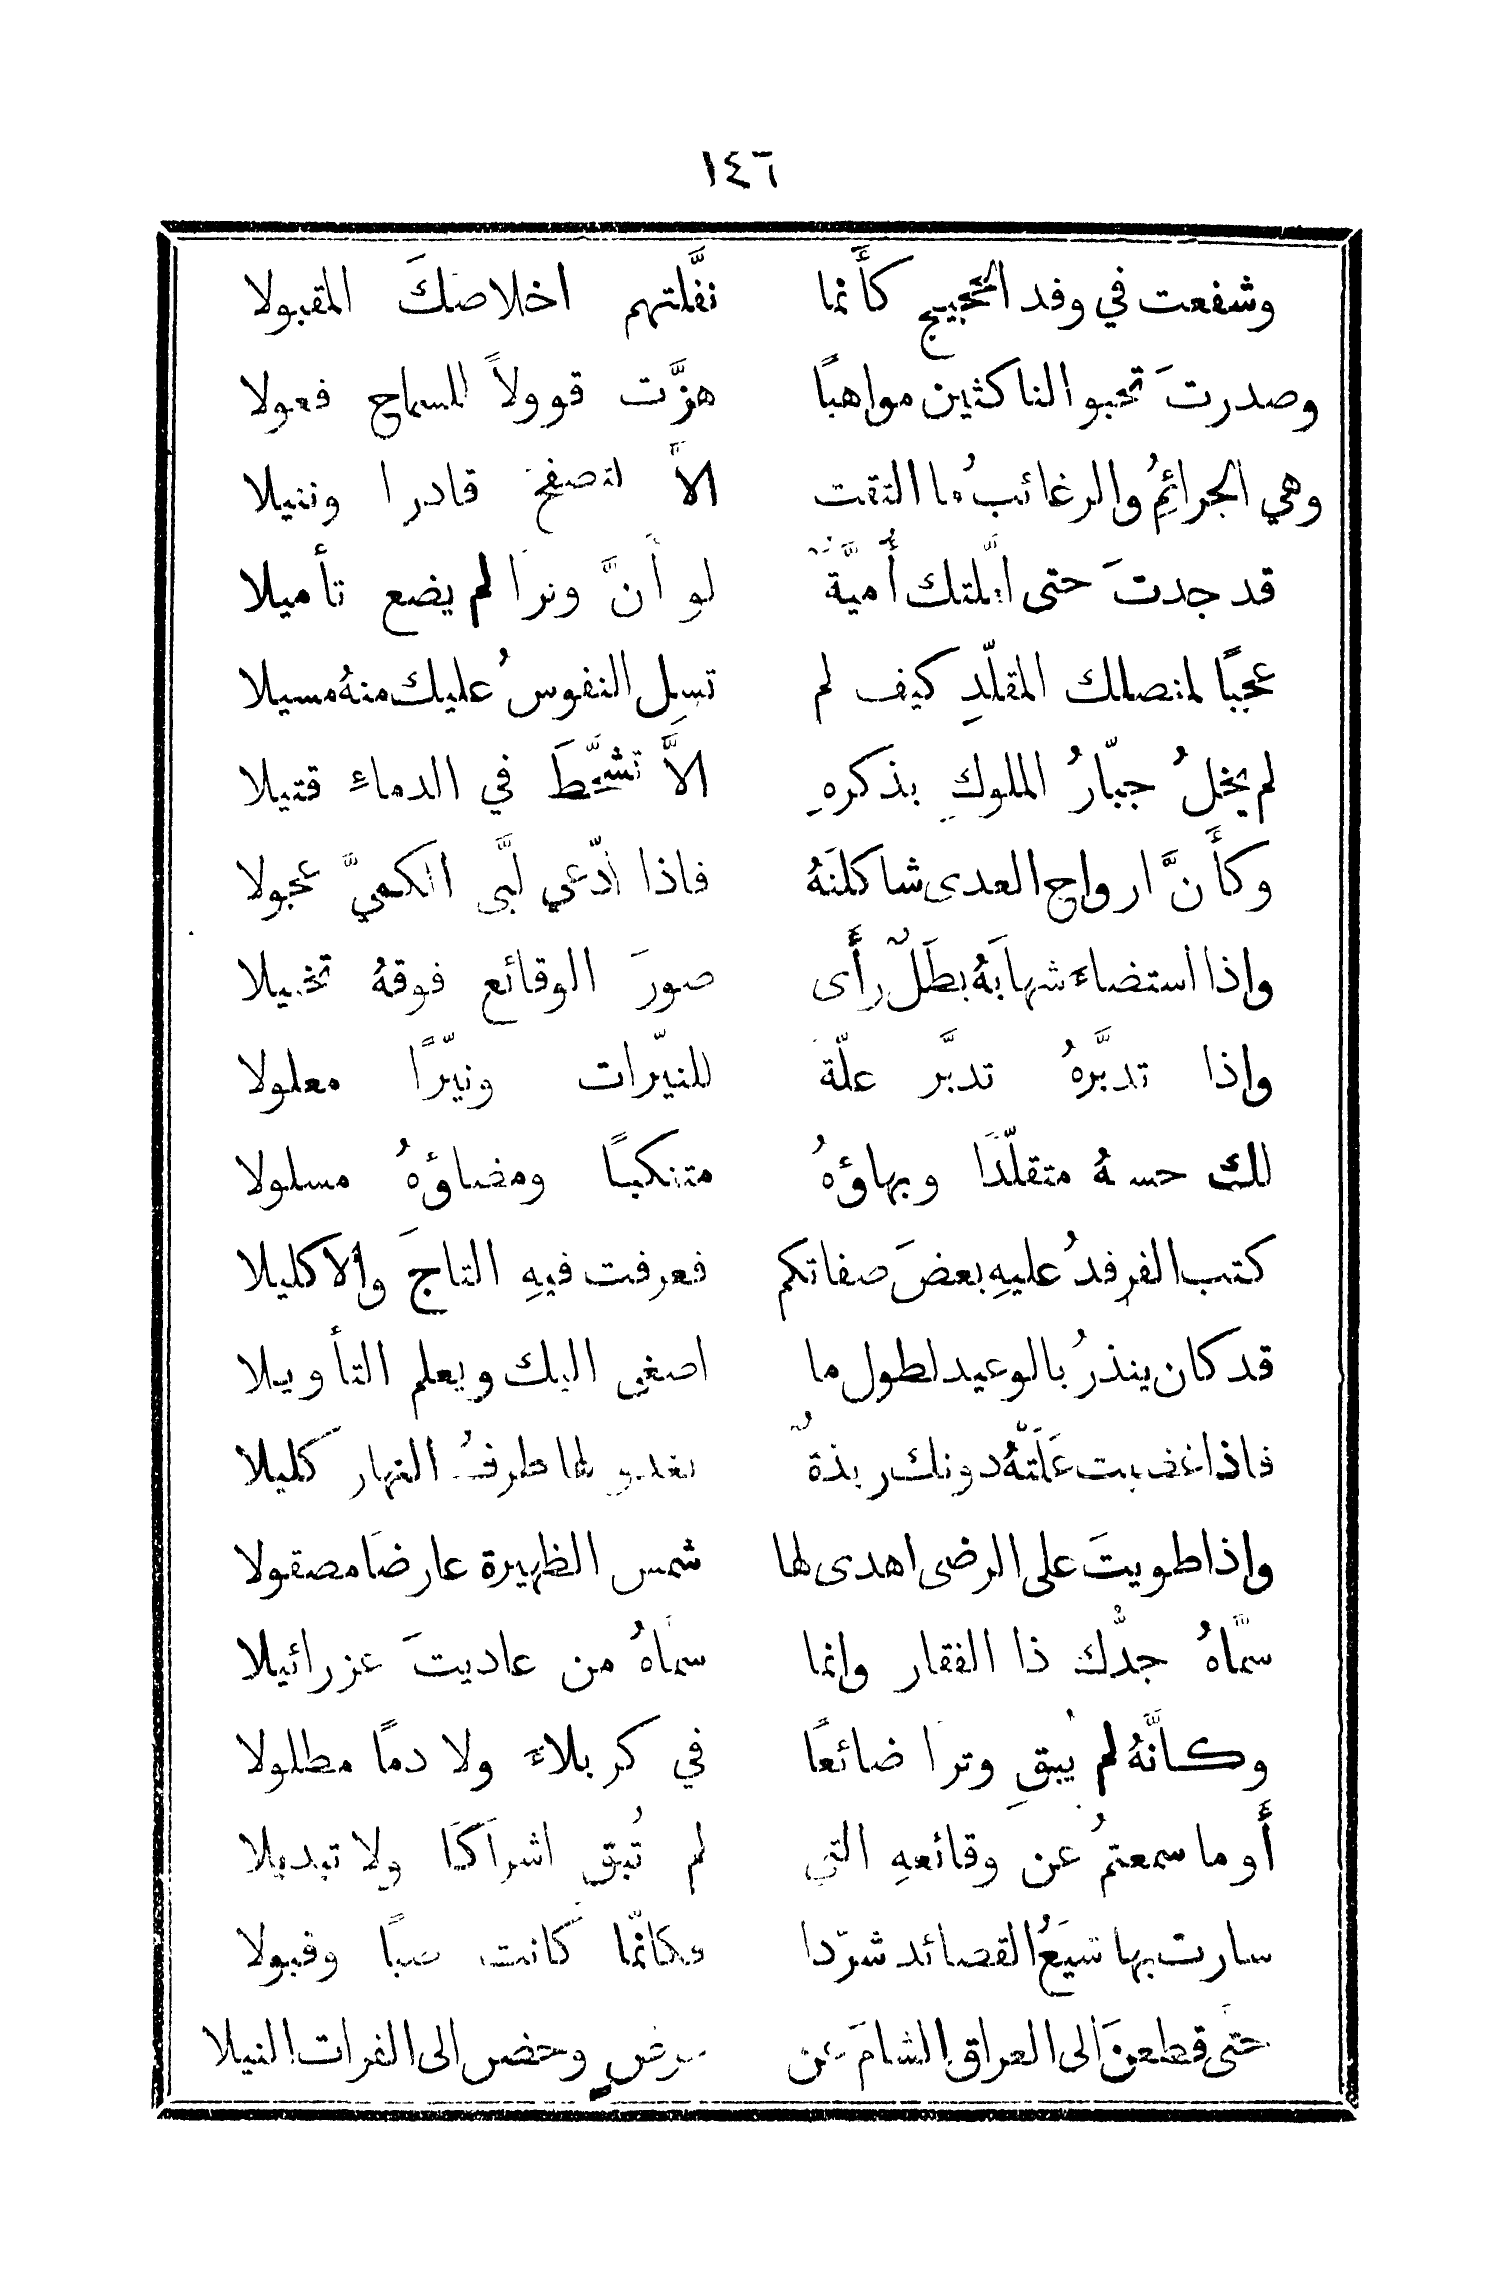 ١٤٦
وشفعت في وفد الحجيج كأَنما نفَّلتهم اخلاصكَ المقبولا
وصدرتَ تحبو الناكثين مواهبًا هزَّت قوولاً للسماح فعولا
وهي الجرائمُ والرغائبُ ما التقت الاَّ لتصفحَ قادرا وتنيلا
قد جدتَ حتى امَّلتك أُميَّةٌ لو أَنَّ وترًا لم يضع تأميلا
عجبًا لمنصلك المقلّدِ كيف لم تسِل النفوسُ عليك منهُ مسيلا
لم يخلُ جبّارُ الملوكِ بذكرهِ الاَّ تشحَّطَ في الدماءِ قتيلا
وكأَنَّ ارواح العدى شاكلنَهُ فاذا ادّعى لبَّى الكميَّ عجولا
واذا استضاءَ شهابَهُ بطَلٌ رأَى صورَ الوقائع فوقهُ تخييلا
واذا تدبَّرهُ تدبَّر علّة للنيّرات ونيّرًا معلولا
لك حسنهُ متقلّدًا وبهاؤهُ متنكبًا ومضاؤهُ مسلولا
كتب الفرندُ عليهِ بعضَ صفاتكم فعرفت فيهِ التاجَ والاكليلا
قد كان ينذرُ بالوعيد لطول ما اصغى اليك ويعلم التأويلا
فاذا غضبت عَلَتْهُ دونك ربذةٌ يغدو لها طرفُ النهار كليلا
واذا طويتَ على الرضى اهدى لها شمس الظهيرة عارضًا مصقولا
سمَّاهُ جدُّك ذا الفقار وانما سماهُ من عاديتَ عزرائيلا
وكأنَّهُ لم يُبقِ وترا ضائعًا في كربلاءَ ولا دمًا مطلولا
أَو ما سمعتمُ عن وقائعهِ التي لم تُبق اشراكًا ولا تبديلا
سارت بها شيَعُ القصائد شرّدا فكانّما كانت صبًا وقبولا
حتى قطعنَ الى العراق الشامَ عن عرض وخضن الى الفرات النيلا